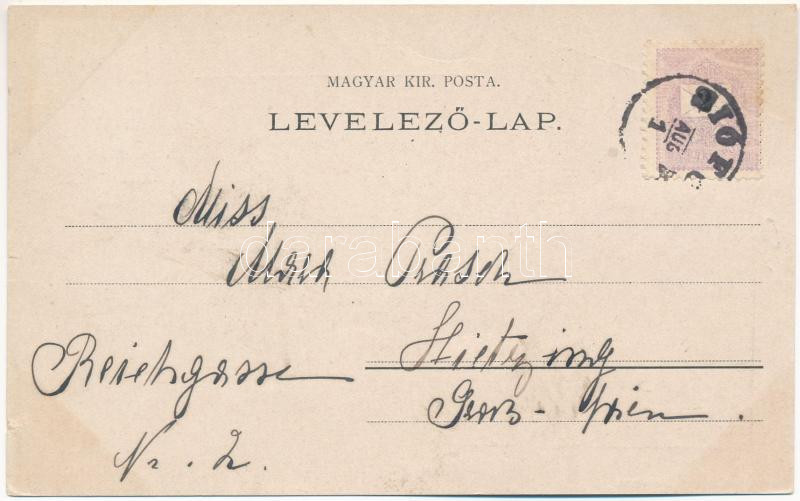 MAGYAR KIR. POSTA.
LEVELEZŐ-LAP.
SIÓFOK
AUG
1
Miss
Maria Prasch
Hietzing
Reichgasse
bei Wien.
Nr. 2.
darabanth